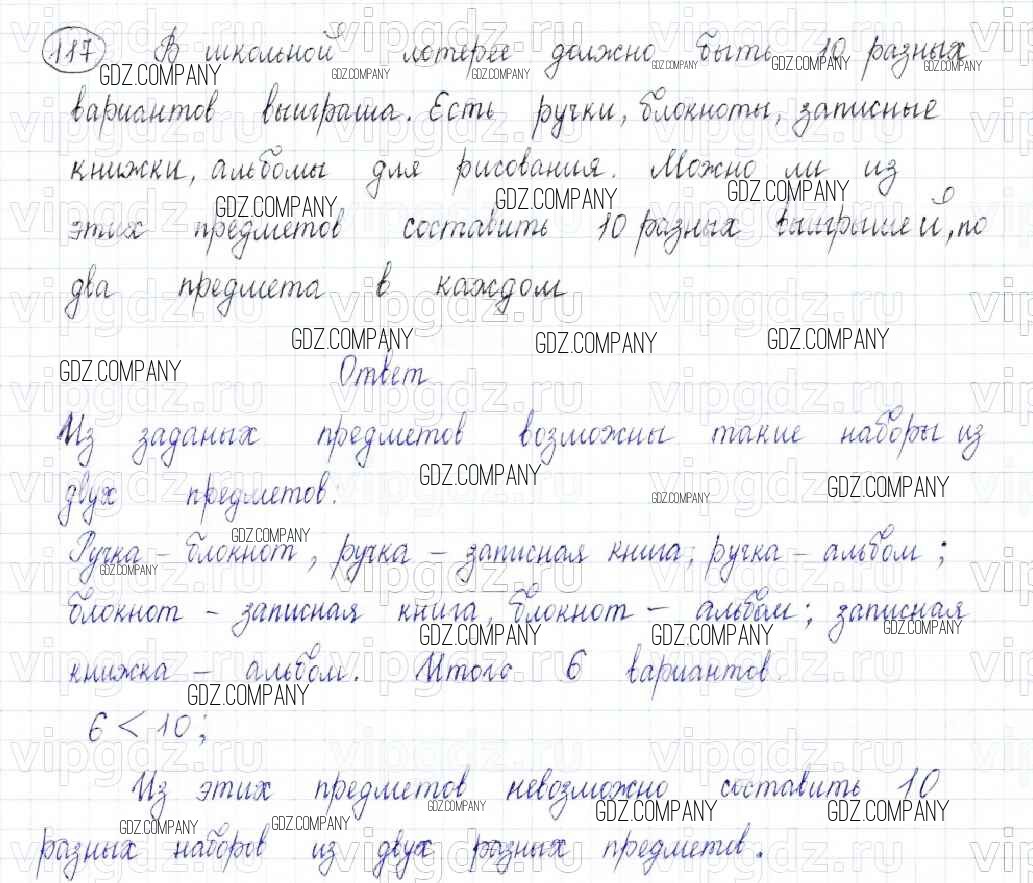 117 В школьной лотерее должно быть 10 разных
вариантов выиграша. Есть ручки, блокноты, записные
книжки, альбомы для рисования. Можно ли из
этих предметов составить 10 разных выигрышей, по
два предмета в каждом
Ответ
Из заданых предметов возможны такие наборы из
двух предметов:
Ручка – блокнот, ручка – записная книга; ручка – альбом;
блокнот – записная книга, блокнот – альбом; записная
книжка – альбом. Итого 6 вариантов
6 < 10;
Из этих предметов невозможно составить 10
разных наборов из двух разных предметов.
GDZ.COMPANY
vipgdz.ru